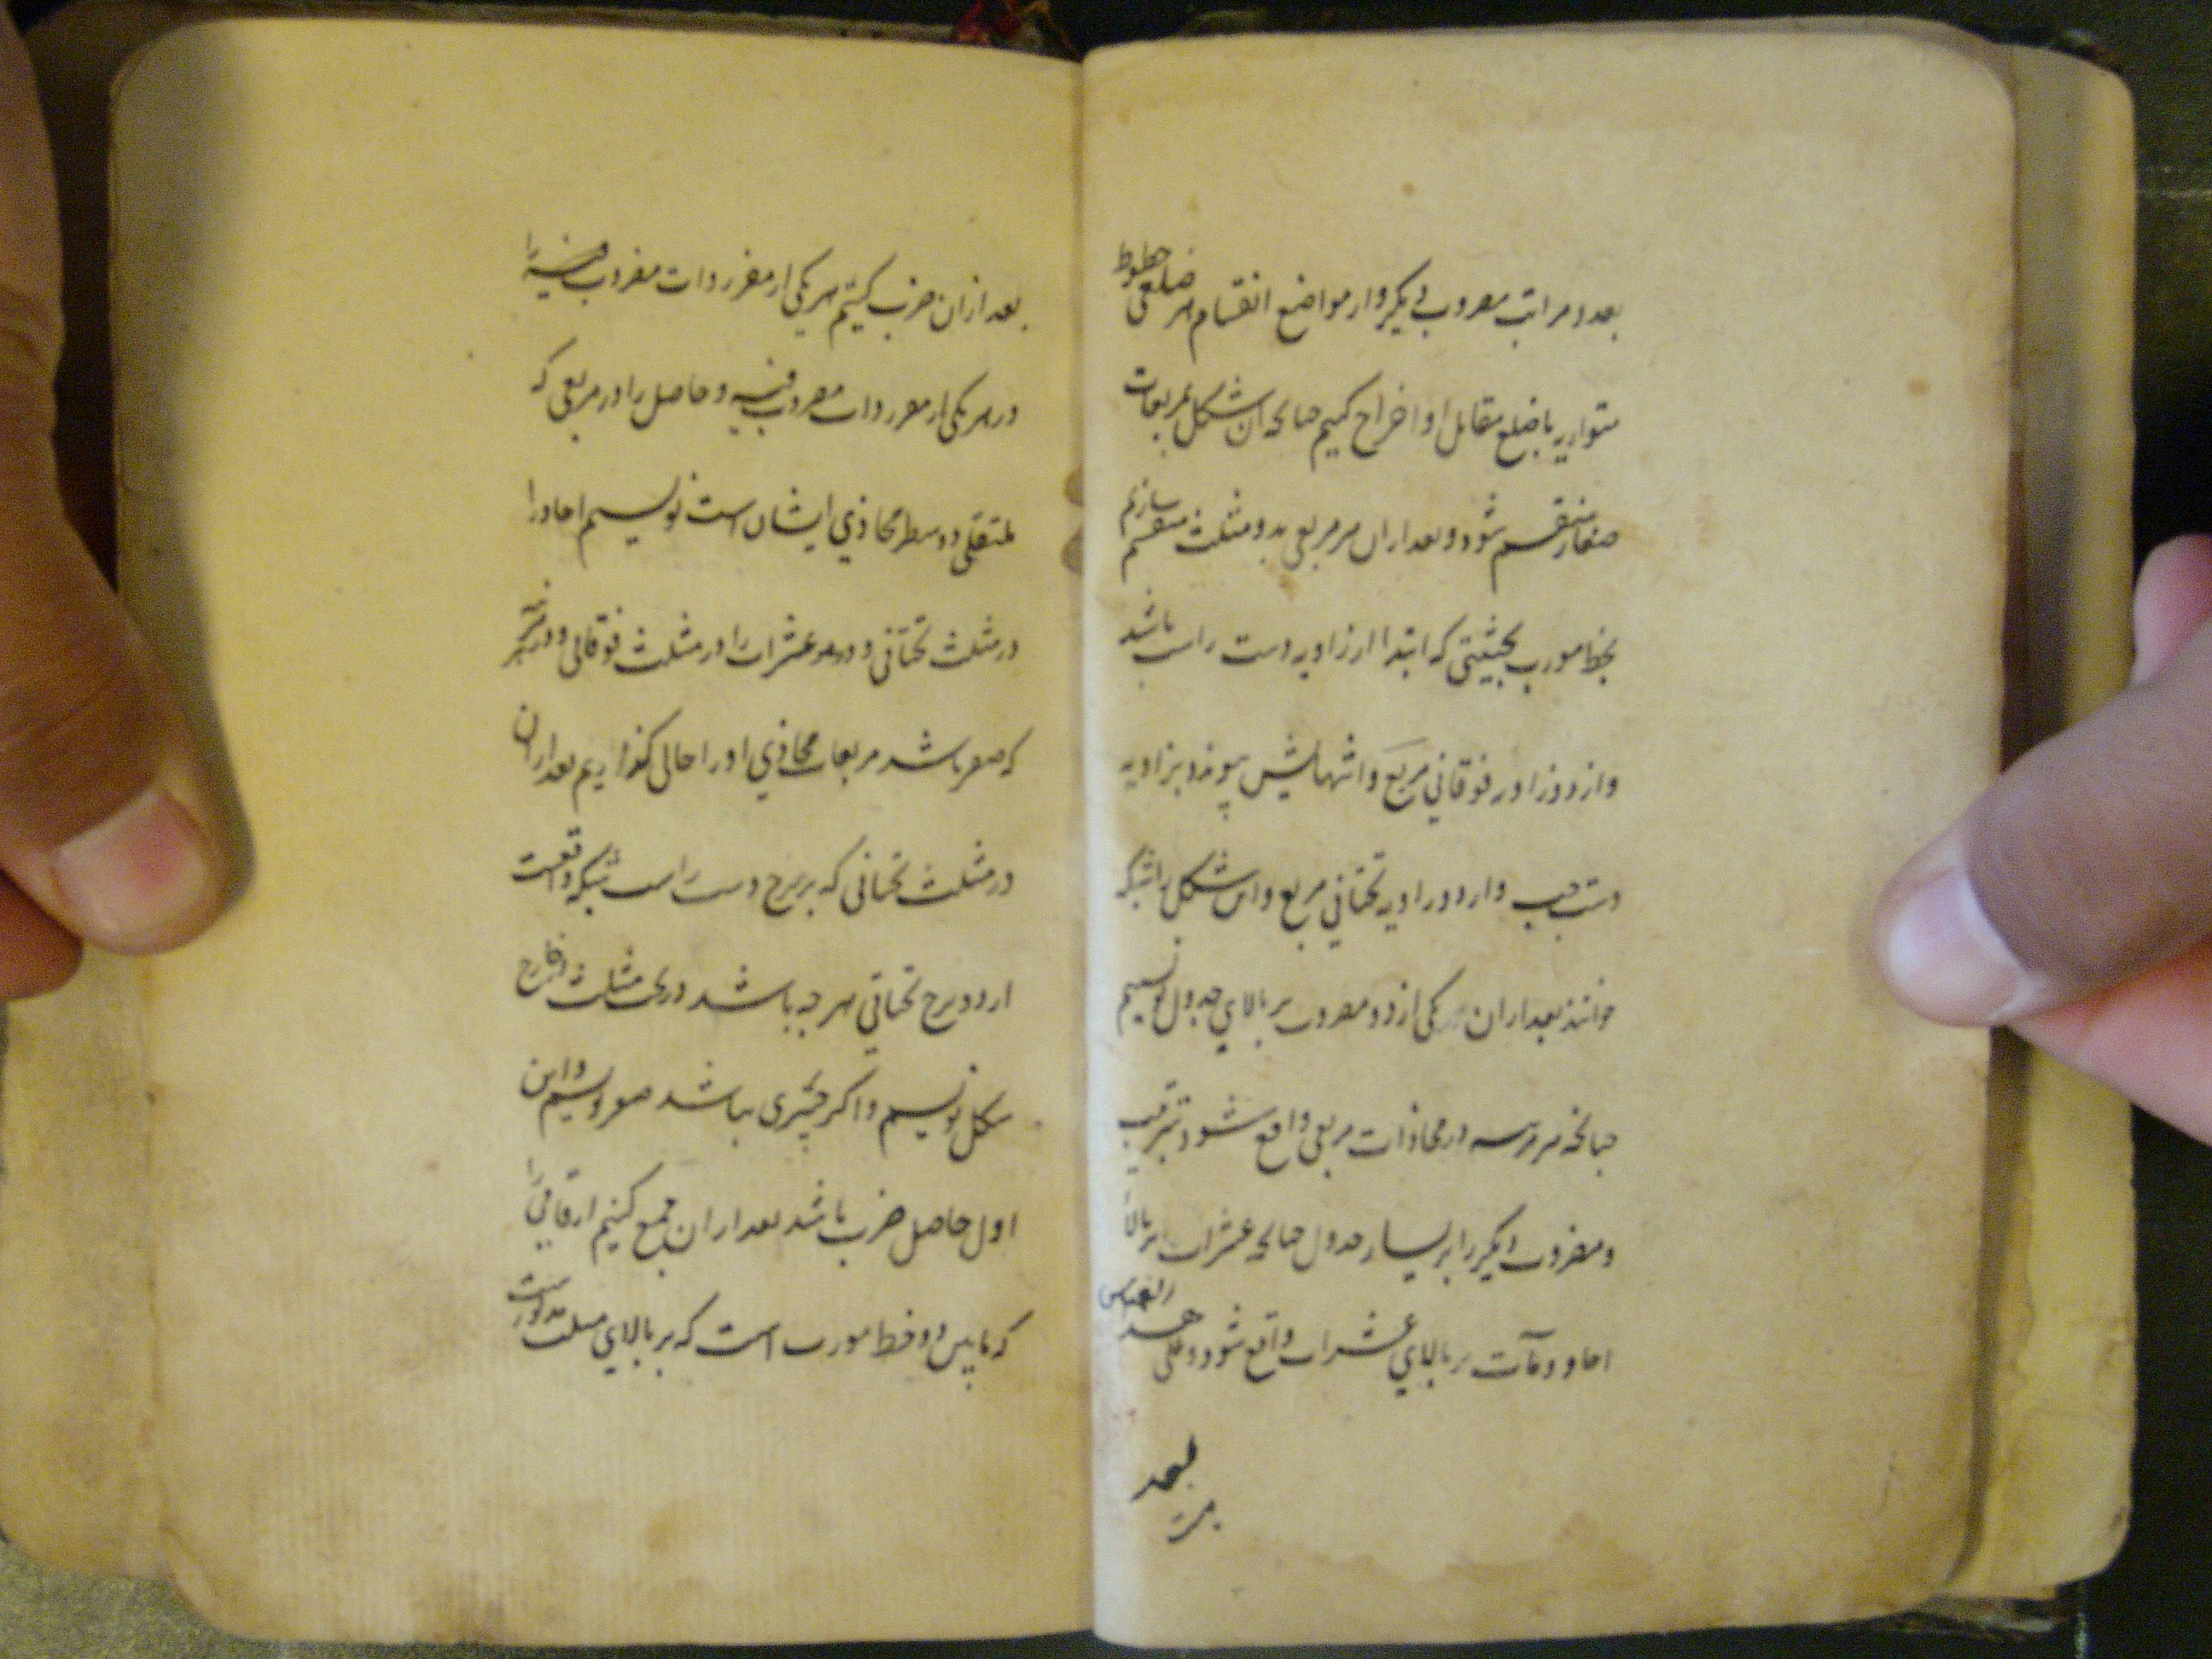 بعدد مراتب مضروب دیگر و از مواضع انقسام هر ضلعی خطوط
متوازیه با ضلع مقابل او اخراج کنیم چنانکه آن شکل بمربعات
صغار منقسم شود و بعد از آن هر مربعی بدو مثلث منقسم سازیم
بخط مورب بحیثیتی که ابتدا از زاویه دست راست باشد
و از دو زاویه فوقانی مربع و انتهایش پیوندد بزاویه
دست چپ و از دو زاویه تحتانی مربع و این شکل را شبکه
خوانند بعد از آن هر یکی از دو مضروب بر بالای جدول نویسیم
چنانچه هر مرتبه در محاذات مربعی واقع شود بترتیب
و مضروب دیگر را بر یسار جدول چنانکه عشرات بر بالای
احاد و مآت بر بالای عشرات واقع شود و علی هذا القیاس
بعد
بعد از آن ضرب کنیم هر یکی از مفردات مضروب را
در هر یکی از مفردات مضروب فیه و حاصل را در مربعی که
ملتقی و وسط محاذی ایشان است نویسیم احاد را
در مثلث تحتانی و عشرات را در مثلث فوقانی و در هر مرتبه
که صفر باشد مربعات محاذی او را خالی گذاریم بعد از آن
در مثلث تحتانی که بر برج دست راست شبکه واقعست
از دو برج تحتانی هر چه باشد در تحت مثلث خارج
شکل نویسیم و اگر چیزی نباشد صفر نویسیم و این
اول حاصل ضرب باشد بعد از آن جمع کنیم ارقامی را
که مابین دو خط مورب است که بر بالای مثلث مذکورست